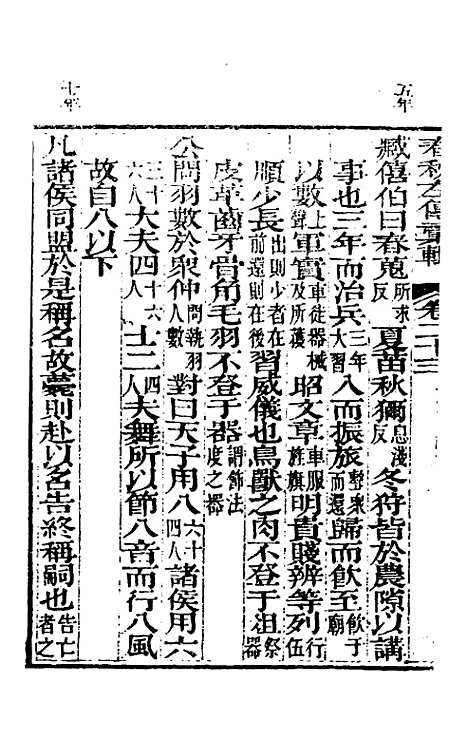 五年
春秋左傳 卷二十三
臧僖伯曰春蒐所求反夏苗秋獮息淺反冬狩皆於農隙以講
事也三年而治兵三年大習入而振旅整衆而還歸而飮至飮于廟
以數上聲軍實車徒器械及所獲昭文章車服旌旗明貴賤辨等列行伍
順少長出則少者在前還則在後習威儀也鳥獸之肉不登于俎祭器
皮革齒牙骨角毛羽不登于器謂飾法度之器
公問羽數於衆仲問執羽人數對曰天子用八六十四人諸侯用六
三十六人大夫四十六人士二四人夫舞所以節八音而行八風
故自八以下
七年
凡諸侯同盟於是稱名故薨則赴以名告終稱嗣也告亡者之